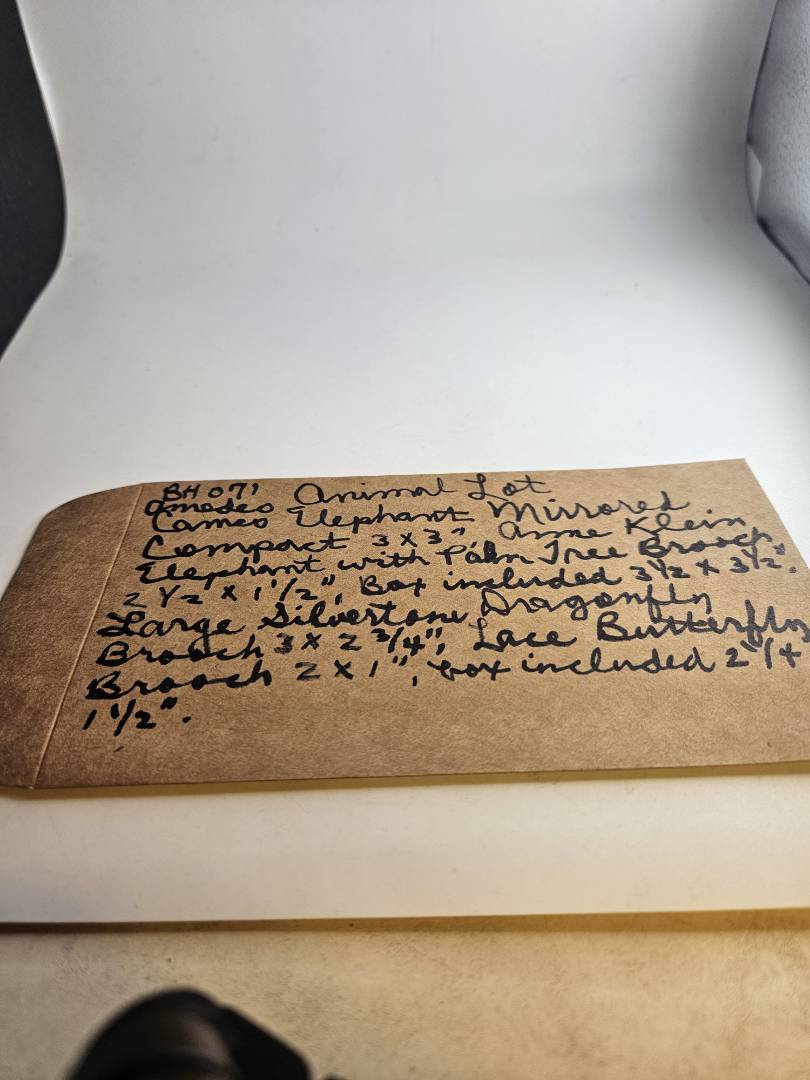 BH 071 Animal Lot
Amadeo
Cameo Elephant Mirrored
Compact 3 x 3", Anne Klein
Elephant with Palm Tree Brooch,
2 1/2 x 1 1/2", Box included 3 1/2 x 3 1/2",
Large Silvertone Dragonfly
Brooch 3 x 2 3/4", Lace Butterfly
Brooch 2 x 1", box included 2 1/4"
1 1/2".